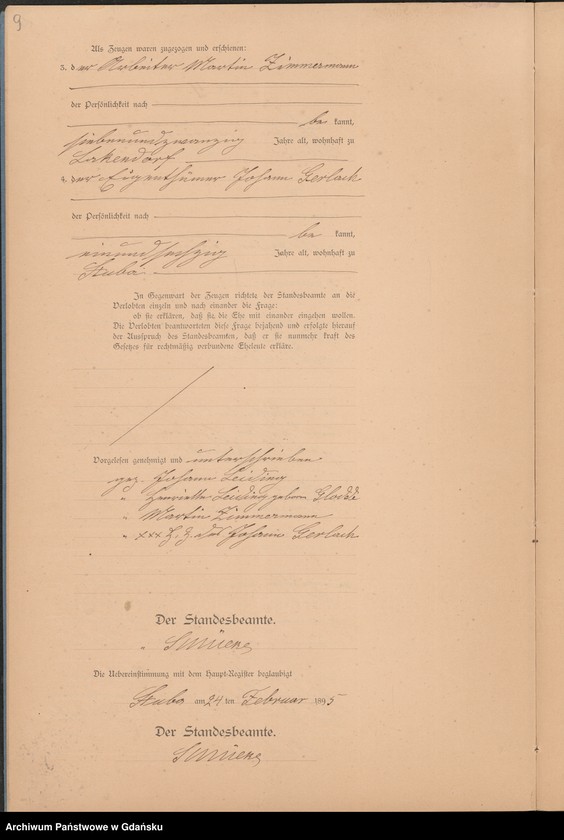 9
Als Zeugen waren zugezogen und erschienen:
3. der Arbeiter Martin Zimmermann
der Persönlichkeit nach
be kannt,
siebenundzwanzig Jahre alt, wohnhaft zu
Lakendorf
4. der Eigenthümer Johann Gerlach
der Persönlichkeit nach
be kannt,
einundsechzig Jahre alt, wohnhaft zu
Stuba
In Gegenwart der Zeugen richtete der Standesbeamte an die
Verlobten einzeln und nach einander die Frage:
ob sie erklären, daß sie die Ehe mit einander eingehen wollen.
Die Verlobten beantworteten diese Frage bejahend und erfolgte hierauf
der Ausspruch des Standesbeamten, daß er sie nunmehr kraft des
Gesetzes für rechtmäßig verbundene Eheleute erkläre.
Vorgelesen, genehmigt und unterschrieben
gez. Johann Leiding
" Henriette Leiding geborn
" Martin Zimmermann
" xxx H. Z. des Johann Gerlach
Der Standesbeamte.
"
Die Uebereinstimmung mit dem Haupt-Register beglaubigt
Stuba am 24 ten Februar 1895
Der Standesbeamte.
Archiwum Państwowe w Gdańsku